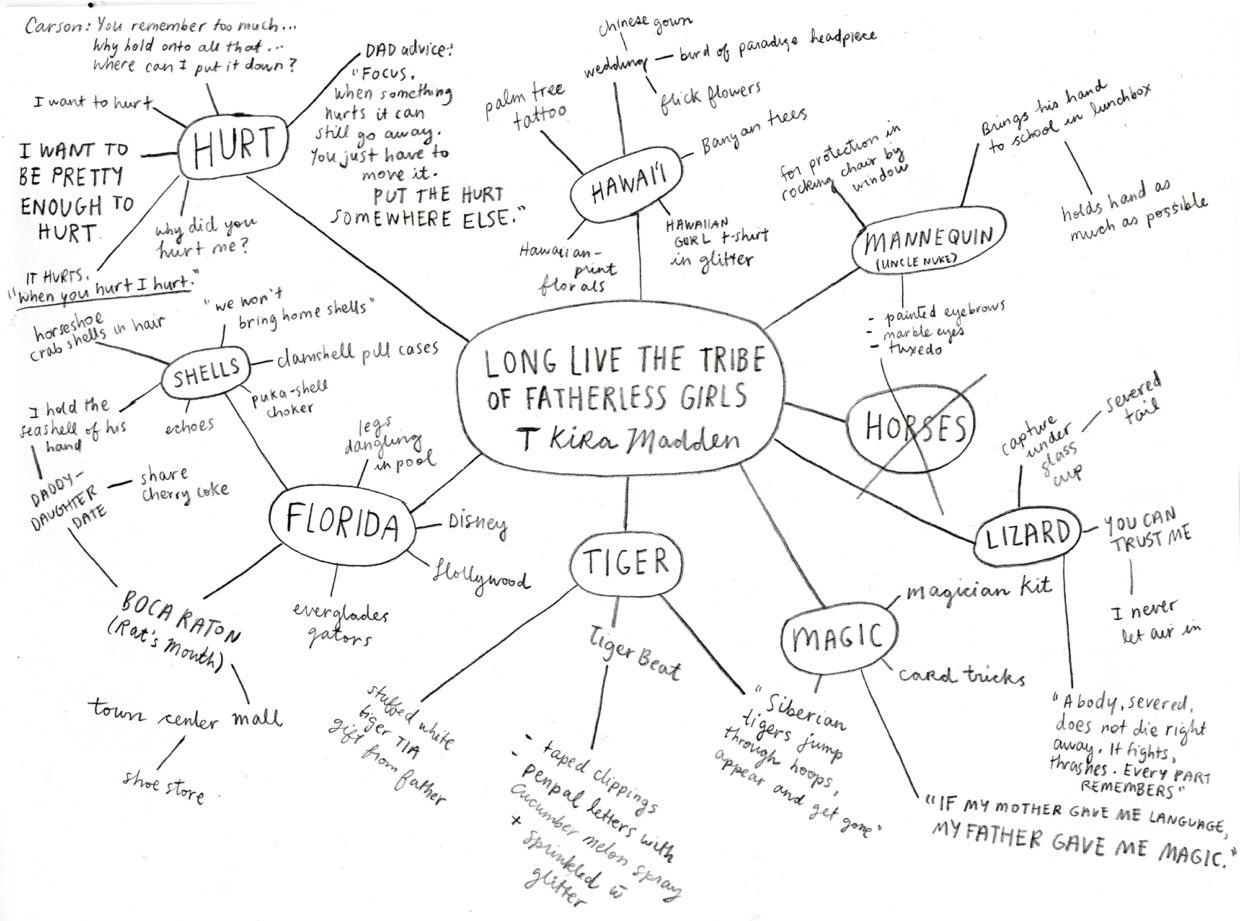 Carson: You remember too much...
Why hold onto all that...
Where can I put it down?
I want to hurt
I WANT TO
BE PRETTY
ENOUGH TO
HURT
HURT
why did you
hurt me?
IT HURTS.
"When you hurt I hurt."
DAD advice:
"FOCUS.
When something
hurts it can
still go away.
You just have to
move it.
PUT THE HURT
SOMEWHERE ELSE."
chinese gown
wedding
bird of paradise headpiece
flick flowers
palm tree
tattoo
HAWAI'I
Banyan trees
HAWAIIAN
GURL t-shirt
in glitter
Hawaiian-
print
florals
for protection in
rocking chair by
window
Brings his hand
to school in lunchbox
holds hand as
much as possible
MANNEQUIN
(UNCLE NUKE)
- painted eyebrows
- marble eyes
- tuxedo
LONG LIVE THE TRIBE
OF FATHERLESS GIRLS
T Kira Madden
HORSES
horseshoe
crab shells in hair
"we won't
bring home shells"
SHELLS
clamshell pill cases
puka-shell
choker
echoes
I hold the
seashell of his
hand
DADDY-
DAUGHTER
DATE
share
cherry coke
legs
dangling
in pool
FLORIDA
Disney
Hollywood
everglades
gators
BOCA RATON
(Rat's Mouth)
town center mall
shoe store
TIGER
stuffed white
tiger TIA
gift from father
Tiger Beat
- taped clippings
- penpal letters with
cucumber melon spray
+ sprinkled w̄
glitter
"Siberian
tigers jump
through hoops,
appear and get gone"
MAGIC
magician kit
card tricks
"IF MY MOTHER GAVE ME LANGUAGE,
MY FATHER GAVE ME MAGIC."
LIZARD
capture
under
glass
cup
severed
tail
YOU CAN
TRUST ME
I never
let air in
"A body, severed,
does not die right
away. It fights,
thrashes. Every PART
REMEMBERS"